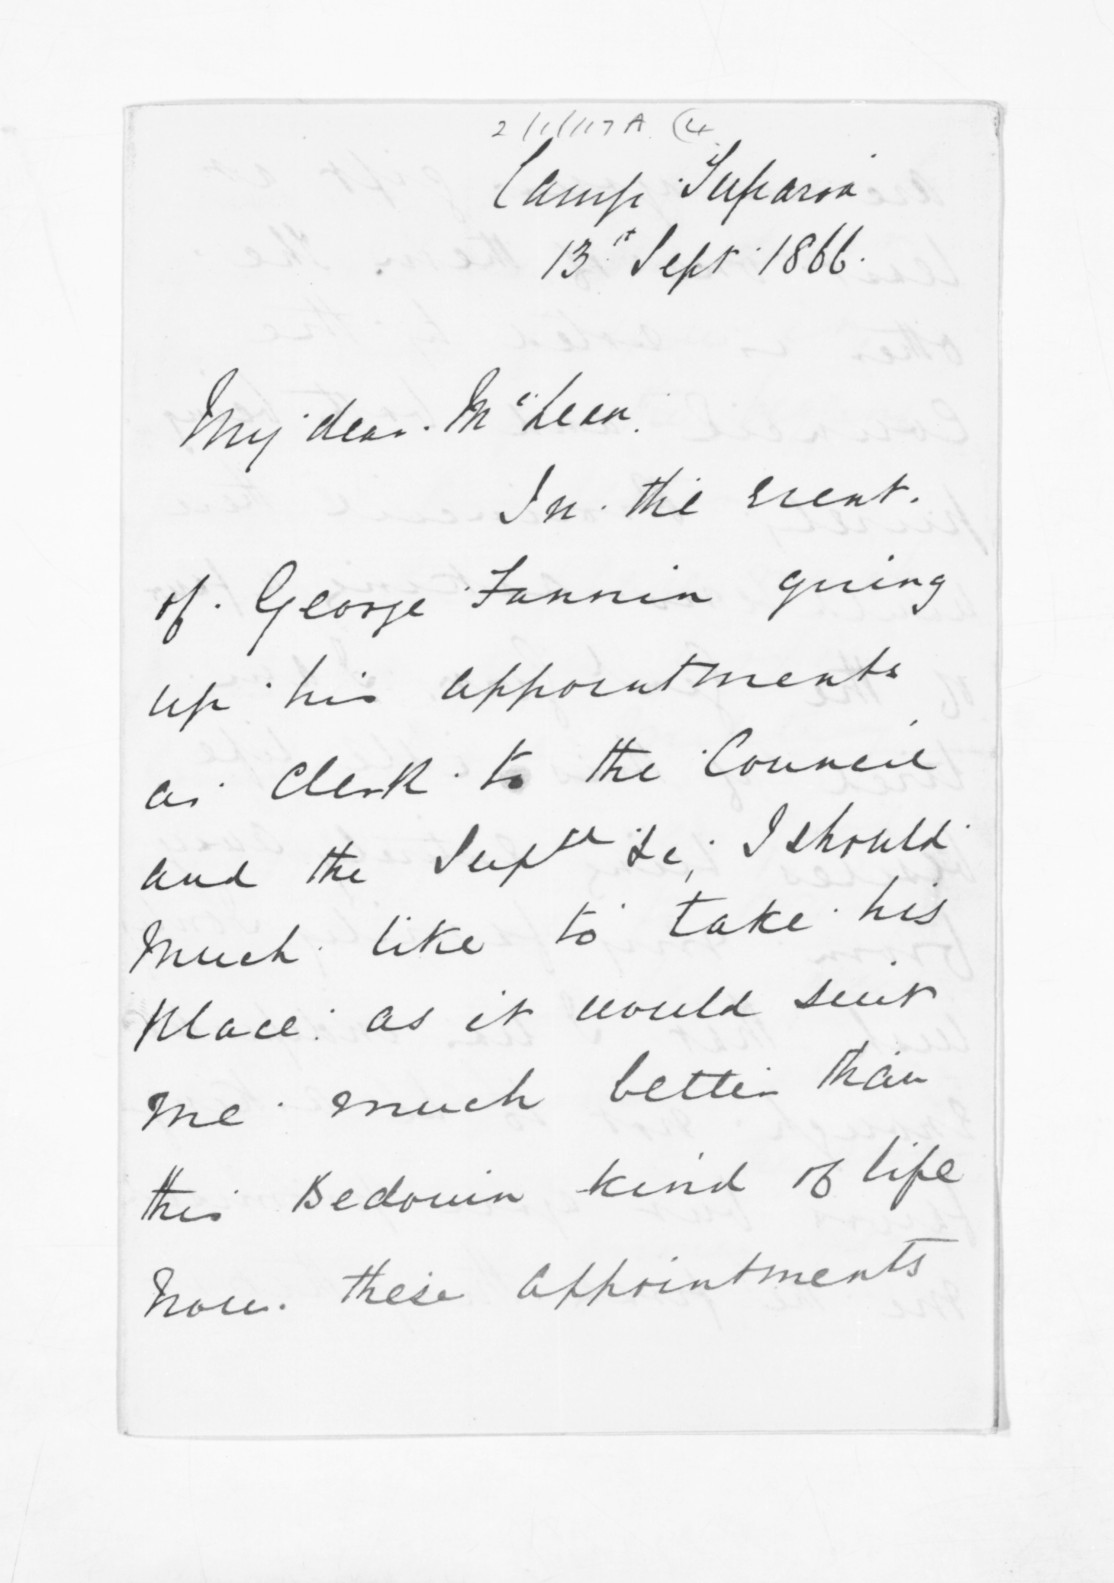 2/1/117A (4
Camp Tuparoa
13th Sept 1866.
My dear McLean.
In the event.
of George Fannin giving
up his appointments
as Clerk to the Council
and the Supt &c; I should
much like to take his
place as it would suit
me much better than
this Bedouin kind of life
Now. these appointments